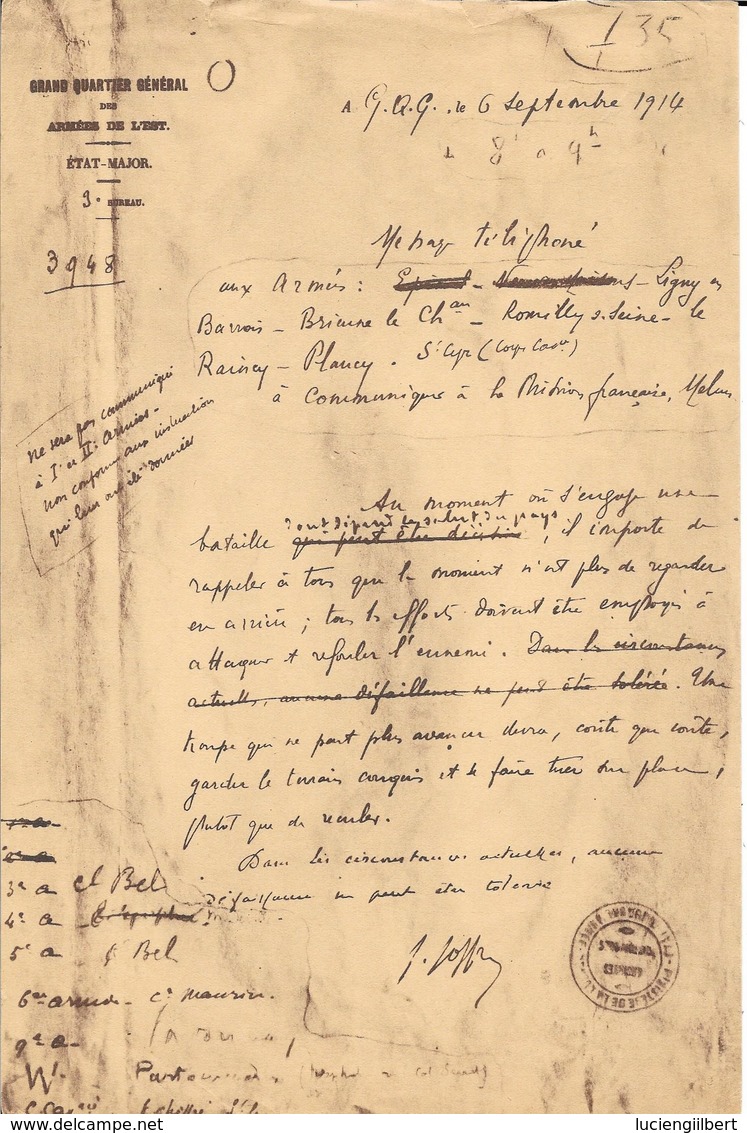 I 35
GRAND QUARTIER GÉNÉRAL
DES
ARMÉES DE L'EST.
ÉTAT-MAJOR.
3e BUREAU.
3948
A G.Q.G. le 6 septembre 1914
8h à 9h
Message téléphoné
aux Armées : Epinal - - Ligny en
Barrois - Brienne le Chau - Romilly s. Seine - le
Raincy - Plancy. St Cyr (Corps Cavie)
à communiquer à la Mission française, Melun
ne sera pas communiqué
à Ie et IIe Armées -
non conforme aux instructions
qui leur ont été données
Au moment où s'engage une
dont dépend le salut du pays
bataille qui peut être décisive, il importe de
rappeler à tous que le moment n'est plus de regarder
en arrière ; tous les efforts doivent être employés à
attaquer et refouler l'ennemi. Dans les circonstances
actuelles, aucune défaillance ne peut être tolérée. Une
troupe qui ne peut plus avancer devra, coûte que coûte,
garder le terrain conquis et se faire tuer sur place,
plutôt que de reculer.
Dans les circonstances actuelles, aucune
défaillance ne peut être tolérée
J. Joffre
3e a ct Bel
4e a
5e a Bel
6e armée - Ce Maurin.
9e a -
W.
luciengilbert